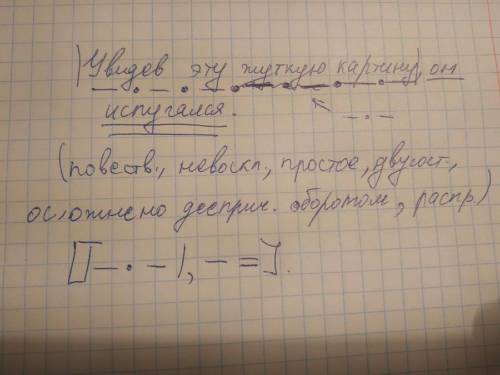 |Увидев эту жуткую картину|, он
испугался.
(повеств., невоскл., простое, двусост.,
осложнено дееприч. оборотом, распр.)
[|— · — |, — =].